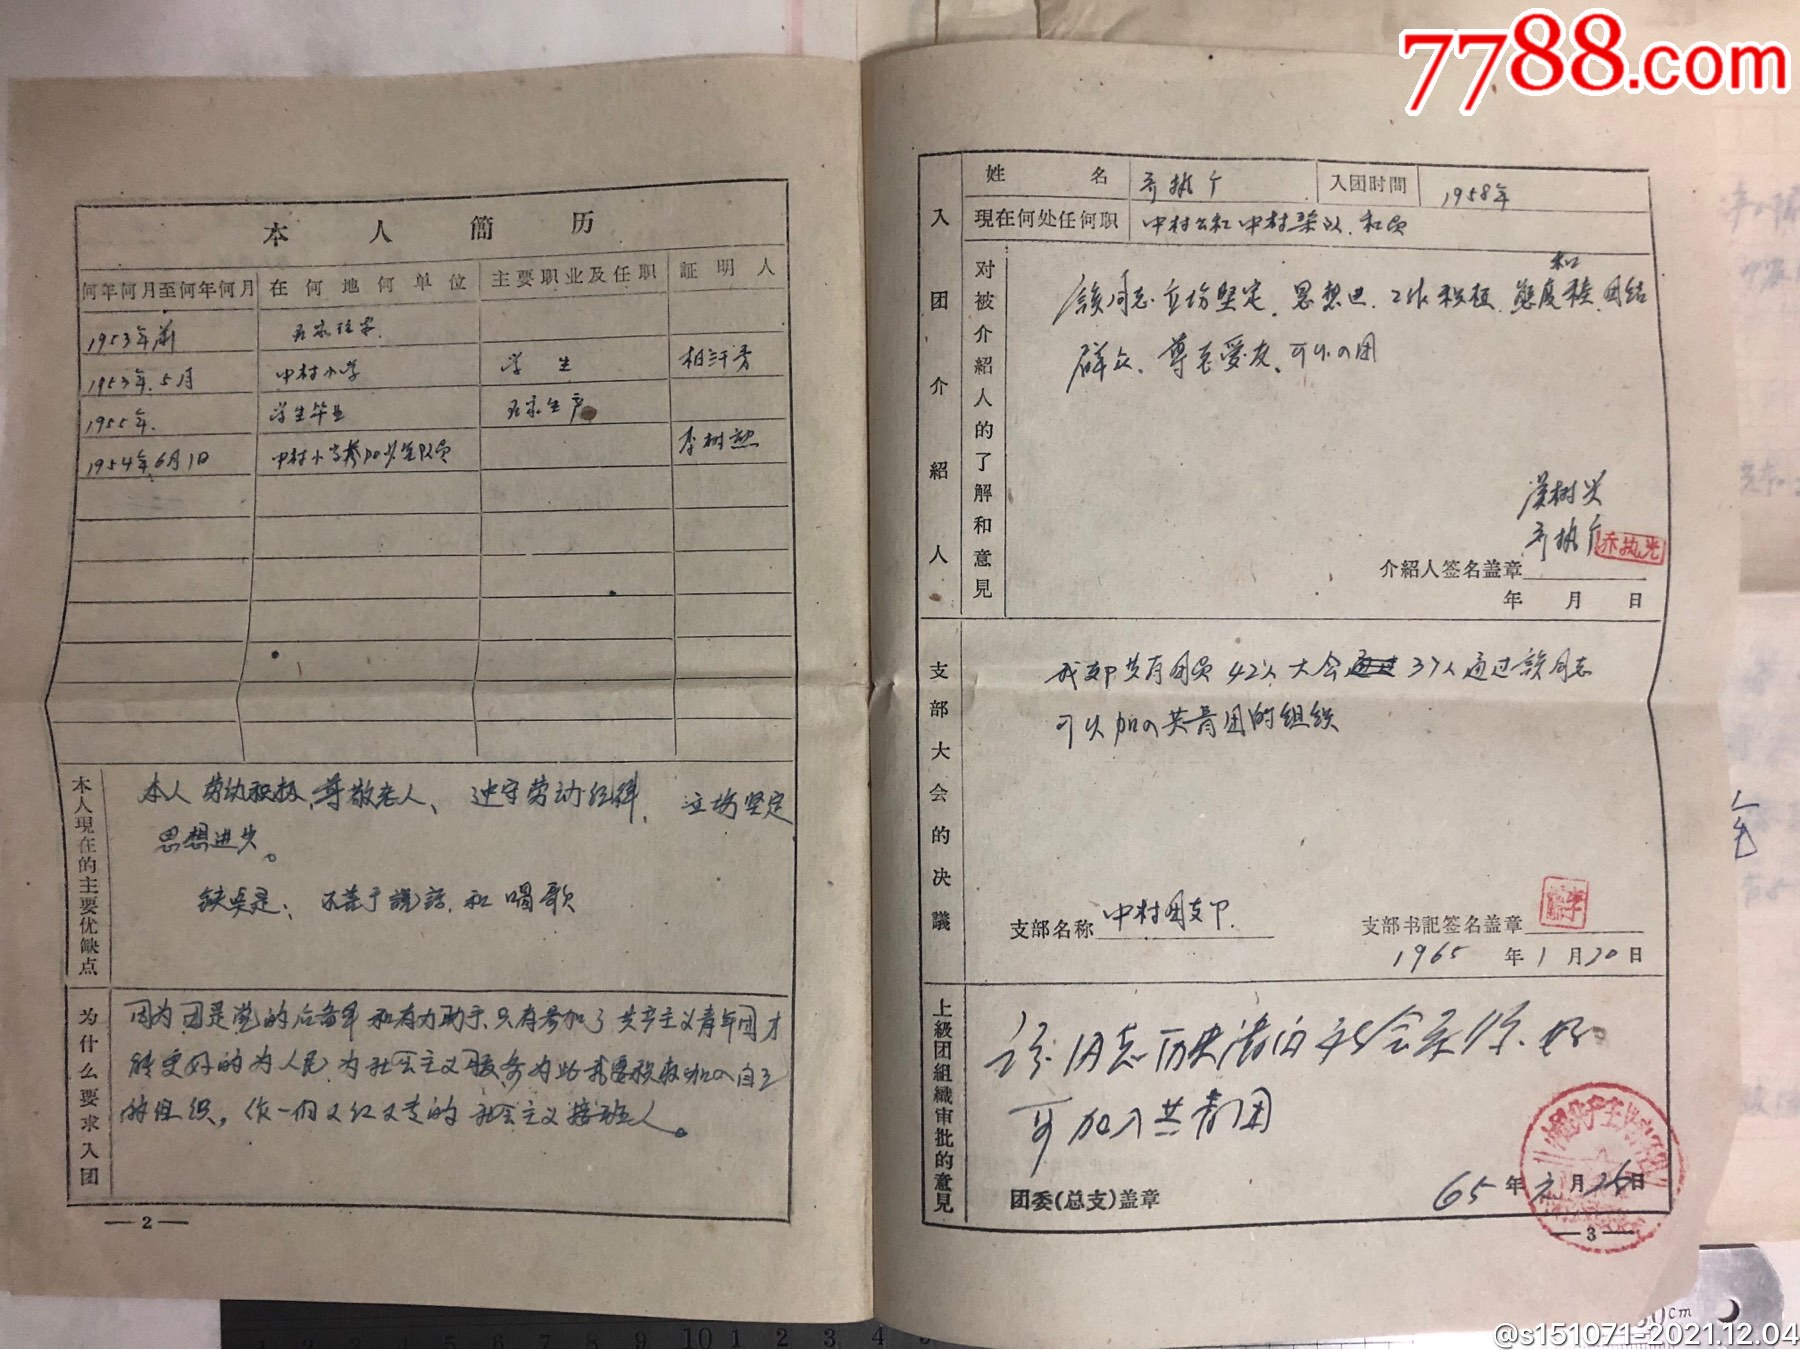 7788.com
本人簡历
何年何月至何年何月 在何地何单位 主要职业及任职 証明人
1953年前
1953年.5月 中村小学 学生
1955年. 学生毕业 在家生产
1954年6月1日 中村小学参加少先队员 李树
本人現在的主要优缺点
本人劳动积极、尊敬老人、遵守劳动纪律, 立场坚定
思想进步。
缺点是: 不善于說話, 和唱歌
为什么要求入团
因为团是党的后备军和有力助手、只有参加了共产主义青年团才
能更好的为人民, 为社会主义服务为此我要积极加入自己
的组织, 作一個又红又专的社会主义接班人。
—2—
入团介紹人
姓名 乔执 入团时間 1958年
現在何处任何职 中村公社中村 队. 社员
对被介紹人的了解和意見
該同志立场坚定、思想进、工作积极、態度和 、团结
群众、尊老爱友、可以入团
树
乔执 乔执光
介紹人签名盖章
年 月 日
支部大会的决議
我支部共有团员42人大会通过37人通过該同志
可以加入共青团的组织
支部名称 中村团支部. 支部书記签名盖章
1965年1月30日
上級团組織审批的意見
该同志历史清白社会关系好
可加入共青团
团委(总支)盖章
65年 月26日
—3—
10 1 2 3 4
cm
@s151071-2021.12.04